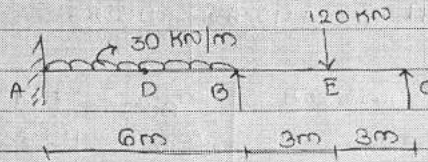 120 KN
30 KN/m
A D B E C
6m 3m 3m